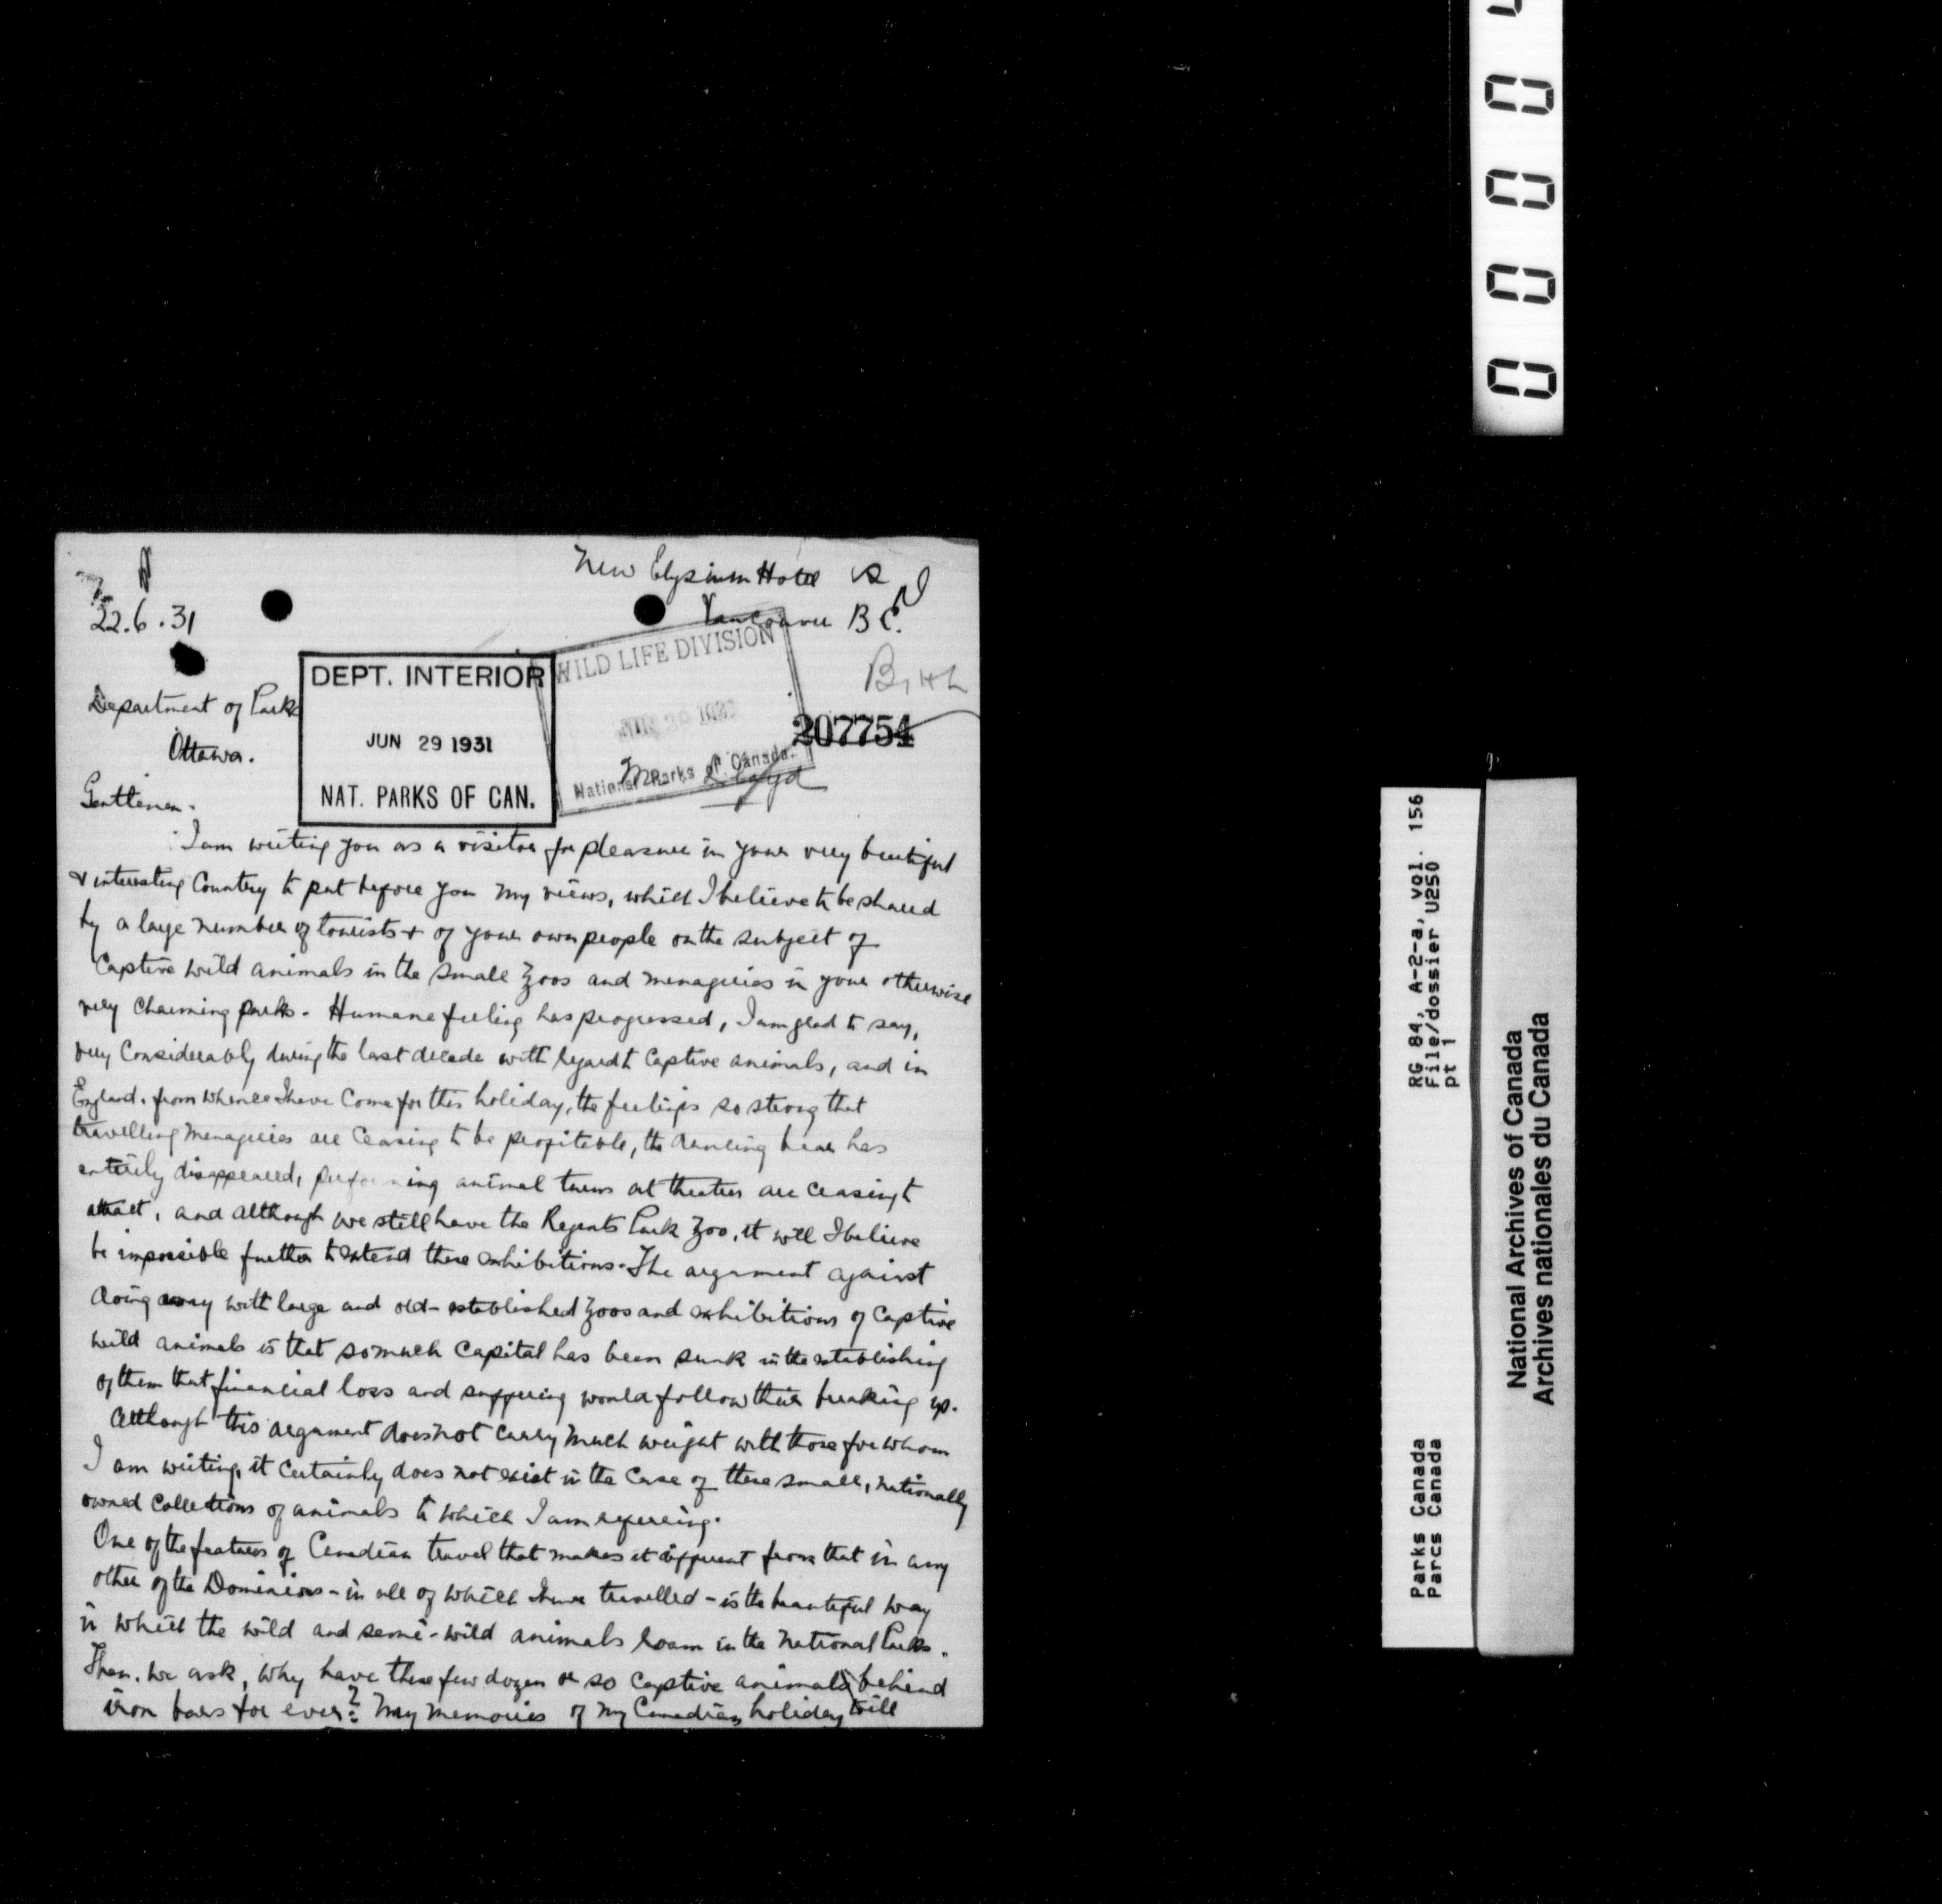 New Elysium Hotel
Vancouver B C.
22.6.31
WILD LIFE DIVISION
National Parks of Canada.
Mr. Lloyd
207754
DEPT. INTERIOR
JUN 29 1931
NAT. PARKS OF CAN.
Department of Parks
Ottawa.
Gentlemen.
I am writing you as a visitor for pleasure in your very beautiful
& interesting Country to put before you my views, which I believe to be shared
by a large number of tourists & of your own people on the subject of
Captive wild animals in the small Zoos and menageries in your otherwise
very charming parks. Humane feeling has progressed, I am glad to say,
very Considerably during the last decade with regard to Captive animals, and in
England. from whence I have Come for this holiday, the feeling is so strong that
travelling menageries are Ceasing to be profitable, the dancing bear has
entirely disappeared, performing animal turns at theatres are Ceasing to
attract, and although we still have the Regents Park Zoo, it will I believe
be impossible further to extend these exhibitions. The argument against
doing away with large and old-established Zoos and exhibitions of Captive
wild animals is that so much Capital has been sunk in the establishing
of them that financial loss and suffering would follow their breaking up.
Although this argument does not Carry much weight with those for whom
I am writing, it Certainly does not exist in the Case of these small, nationally
owned Collections of animals to which I am referring.
One of the features of Canadian travel that makes it different from that in any
other of the Dominions - in all of which I have travelled - is the beautiful way
in which the wild and semi-wild animals roam in the National Parks.
Then. we ask, why have these few dozen or so Captive animals behind
iron bars for ever? My memories of my Canadian holiday will
0 0 0 0
RG 84, A-2-a, vol. 156
File/dossier U250
pt 1
Parks Canada
Parcs Canada
National Archives of Canada
Archives nationales du Canada